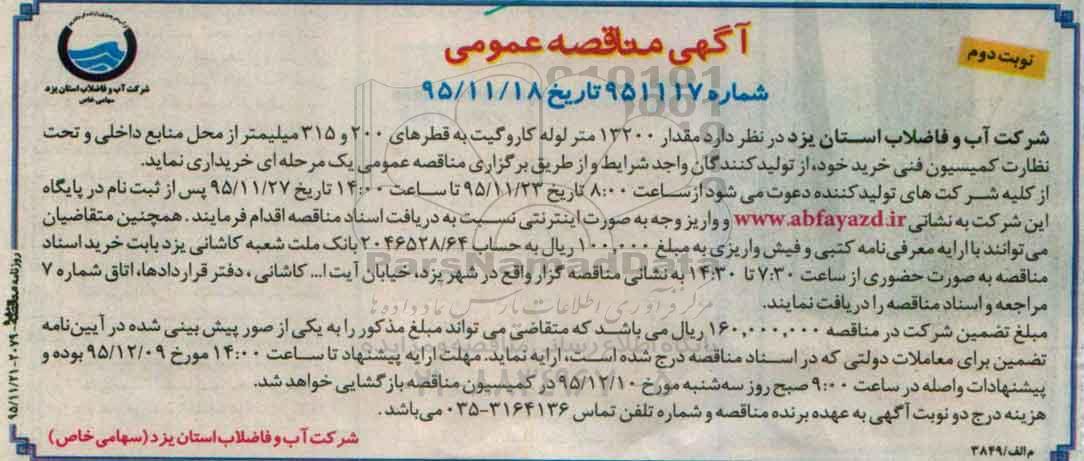 آگهی مناقصه عمومی
نوبت دوم
شماره ۹۵۱۱۱۷ تاریخ ۹۵/۱۱/۱۸
شرکت آب و فاضلاب استان یزد
سهامی خاص
شرکت آب و فاضلاب استان یزد در نظر دارد مقدار ۱۳۲۰۰ متر لوله کاروگیت به قطرهای ۲۰۰ و ۳۱۵ میلیمتر از محل منابع داخلی و تحت
نظارت کمیسیون فنی خرید خود، از تولیدکنندگان واجد شرایط و از طریق برگزاری مناقصه عمومی یک مرحله ای خریداری نماید.
از کلیه شرکت های تولیدکننده دعوت می شود از ساعت ۸:۰۰ تاریخ ۹۵/۱۱/۲۳ تا ساعت ۱۴:۰۰ تاریخ ۹۵/۱۱/۲۷ پس از ثبت نام در پایگاه
این شرکت به نشانی www.abfayazd.ir و واریز وجه به صورت اینترنتی نسبت به دریافت اسناد مناقصه اقدام فرمایند. همچنین متقاضیان
می توانند با ارایه معرفی نامه کتبی و فیش واریزی به مبلغ ۱۰۰,۰۰۰ ریال به حساب ۲۰۴۶۵۲۸/۶۴ بانک ملت شعبه کاشانی یزد بابت خرید اسناد
مناقصه به صورت حضوری از ساعت ۷:۳۰ تا ۱۴:۳۰ به نشانی مناقصه گزار واقع در شهر یزد، خیابان آیت ا... کاشانی ، دفتر قراردادها، اتاق شماره ۷
مراجعه و اسناد مناقصه را دریافت نمایند.
مبلغ تضمین شرکت در مناقصه ۱۶۰,۰۰۰,۰۰۰ ریال می باشد که متقاضی می تواند مبلغ مذکور را به یکی از صور پیش بینی شده در آیین نامه
تضمین برای معاملات دولتی که در اسناد مناقصه درج شده است، ارایه نماید. مهلت ارایه پیشنهاد تا ساعت ۱۴:۰۰ مورخ ۹۵/۱۲/۰۹ بوده و
پیشنهادات واصله در ساعت ۹:۰۰ صبح روز سه شنبه مورخ ۹۵/۱۲/۱۰ در کمیسیون مناقصه بازگشایی خواهد شد.
هزینه درج دو نوبت آگهی به عهده برنده مناقصه و شماره تلفن تماس ۳۱۶۴۱۳۶-۰۳۵ می باشد.
شرکت آب و فاضلاب استان یزد (سهامی خاص)
م الف/۳۸۴۹
روزنامه مناقصه - ۲۰۷۹ - ۹۵/۱۱/۲۱
ParsNamadData